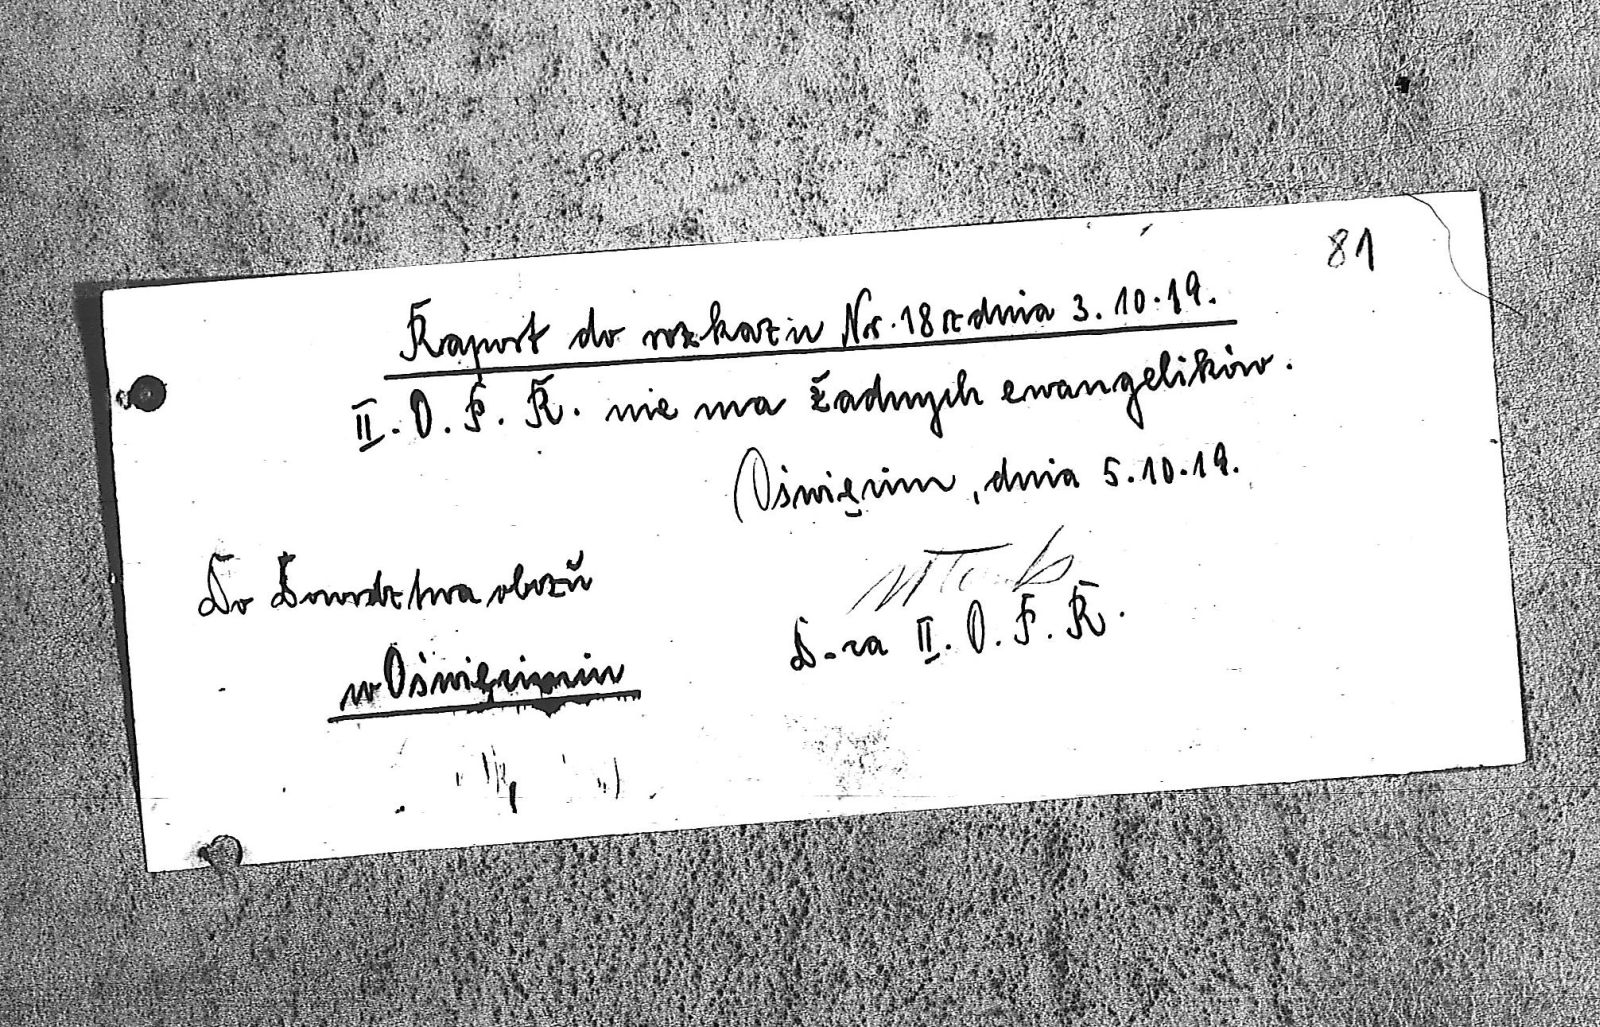 81
Raport do rozkazu Nr. 18 z dnia 3.10.19.
II. O. P. R. nie ma żadnych ewangelików.
Oświęcim, dnia 5.10.19.
Do Dowództwa obozu
w Oświęcimiu
D-ca II. O. P. R.